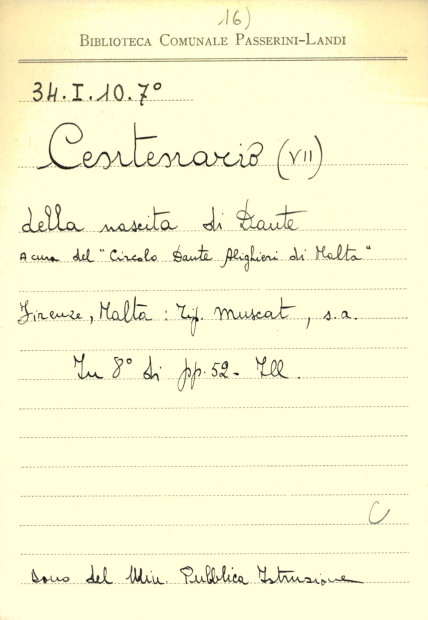 16)
BIBLIOTECA COMUNALE PASSERINI-LANDI
34.I.10.7°
Centenario (VII)
della nascita di Dante
A cura del "Circolo Dante Alighieri di Malta"
Firenze, Malta : Tip. Muscat, s.a.
In 8° di pp. 52 - Ill.
C
Dono del Min. Pubblica Istruzione